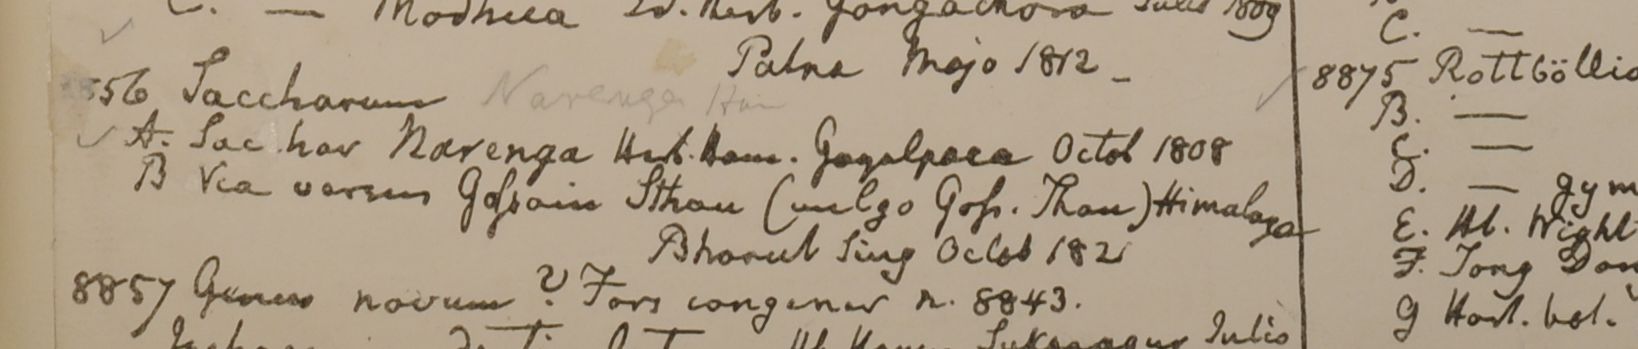 C. — Modhica Id. Herb. Gongachora Julio 1809
Patna Majo 1812 _
8856 Saccharum Narenga Ham
A. Sac. har Narenga Herb. Ham. Goyalpara Octob 1808
B Via versus Gossain Sthan (vulgo Goss. Than) Himalaya
Bharut Sing Octob 182
8857 Genus novum? Fors congener n. 8843.
Hb. Ham. Julio
C. —
8875 Rottböllia
B. —
C. —
D. — gym
E. Hb. Wight
F. Tong Dong
G Hort. bot.